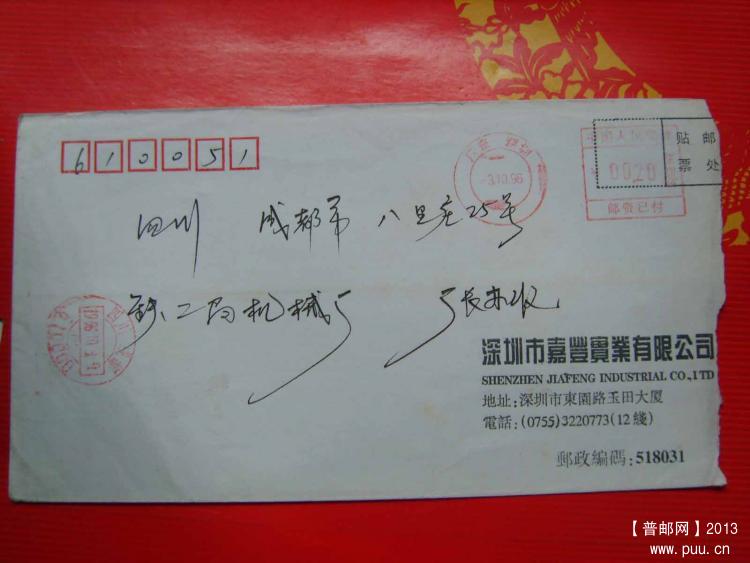 610051
-3.10.96
中国人民邮政
0020
邮资已付
贴邮
票处
四川 成都市 八里庄25号
铁二局机械厂 张
深圳市嘉豐實業有限公司
SHENZHEN JIAFENG INDUSTRIAL CO.,LTD
地址:深圳市東園路玉田大厦
電話:(0755)3220773(12綫)
郵政編碼:518031
【普邮网】2013
www.puu.cn